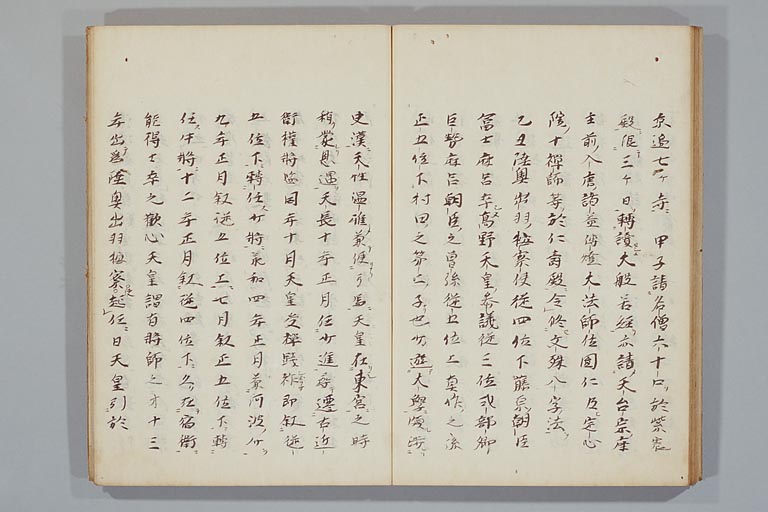 京邊七ケ寺 甲子請名僧六十口於紫宸
殿限三ケ日轉讀大般若經亦請天台宗座
主前入唐請益傳燈大法師位圓仁及定心
院十禪師等於仁壽殿令修文殊八字法
乙丑陸奥出羽按察使從四位下藤原朝臣
冨士麻呂卒高野天皇參議從三位式部卿
巨勢麻呂朝臣之曽孫從五位上真作之孫
正五位下村田之第二子也少遊大學頗渉
史漢天性温雅兼便弓馬天皇在東宮之時
稍蒙恩遇天長十年正月任少進尋遷右近
衛權將監同年十月天皇受禪踐祚即叙從
五位下轉任少將承和四年正月兼阿波介
九年正月叙從五位上七月叙正五位下轉
任中將十二年正月叙從四位下久在宿衛
能得士卒之歡心天皇謂有將師之才十三
年出爲陸奥出羽按察使起任日天皇引於